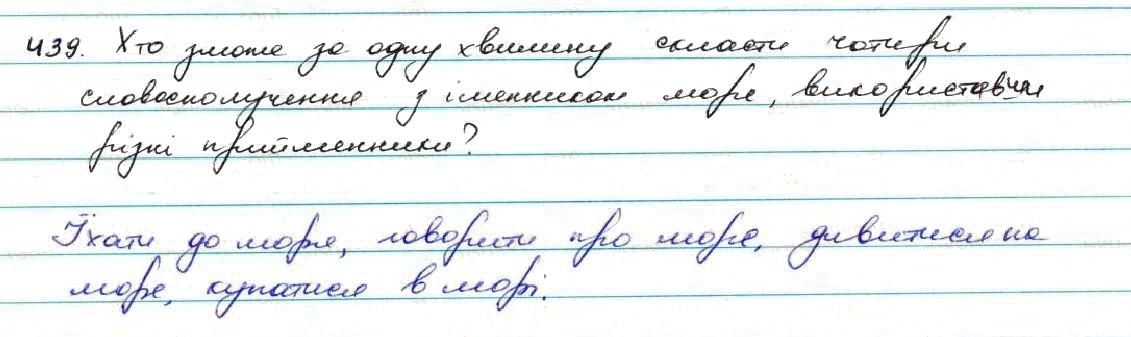 439. Хто зможе за одну хвилину скласти чотири
словосполучення з іменником море, використавши
різні прийменники?
Їхати до моря, говорити про море, дивитися на
море, купатися в морі.